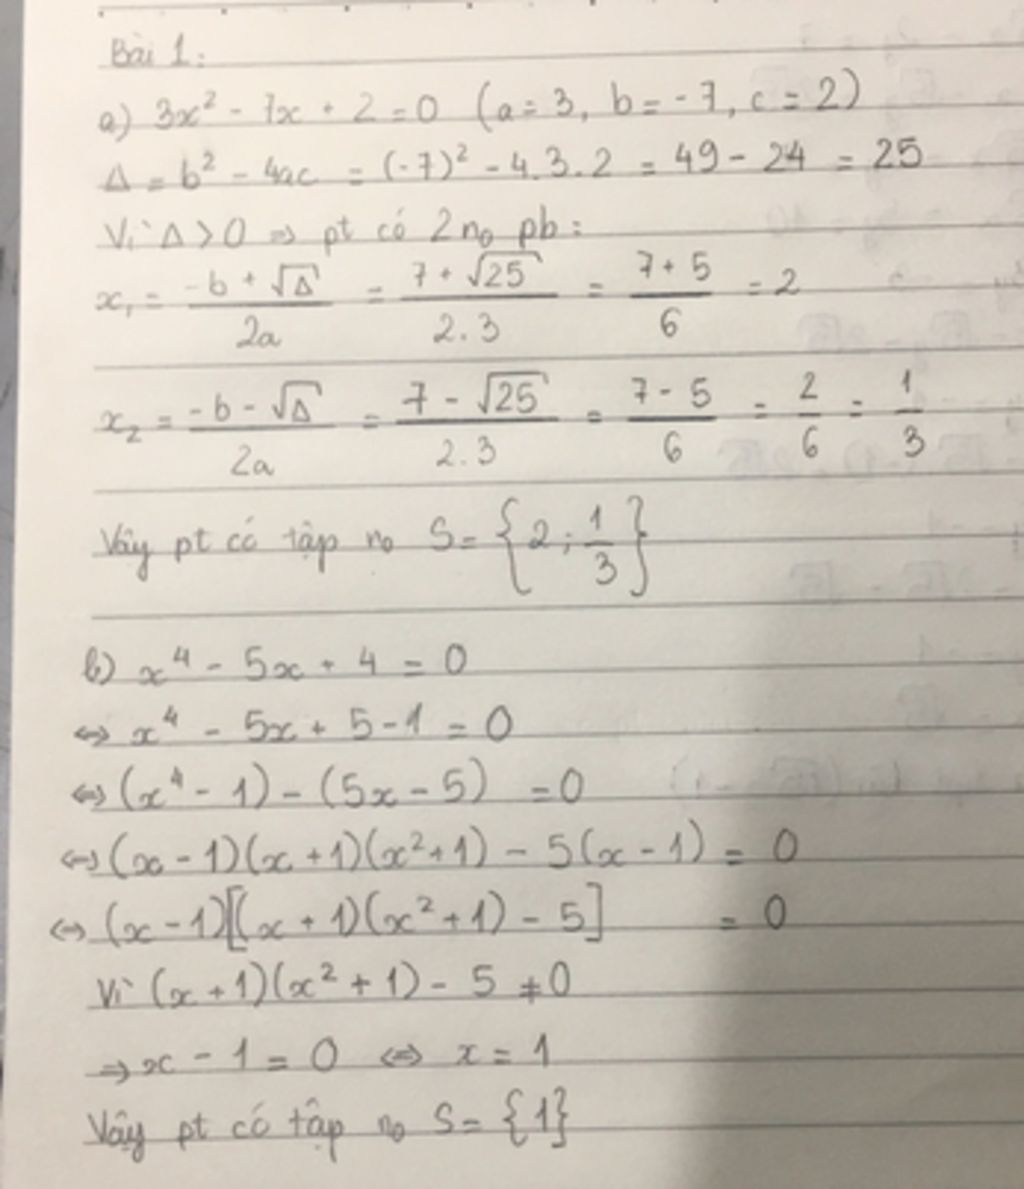 Bài 1:
a) 3x² - 7x + 2 = 0 (a = 3, b = -7, c = 2)
Δ = b² - 4ac = (-7)² - 4.3.2 = 49 - 24 = 25
Vì Δ > 0 => pt có 2 n₀ pb:
x₁ = (-b + √Δ)/2a = (7 + √25)/2.3 = (7 + 5)/6 = 2
x₂ = (-b - √Δ)/2a = (7 - √25)/2.3 = (7 - 5)/6 = 2/6 = 1/3
Vậy pt có tập n₀ S = {2; 1/3}
b) x⁴ - 5x + 4 = 0
<=> x⁴ - 5x + 5 - 1 = 0
<=> (x⁴ - 1) - (5x - 5) = 0
<=> (x - 1)(x + 1)(x² + 1) - 5(x - 1) = 0
<=> (x - 1)[(x + 1)(x² + 1) - 5] = 0
Vì (x + 1)(x² + 1) - 5 ≠ 0
=> x - 1 = 0 <=> x = 1
Vậy pt có tập n₀ S = {1}